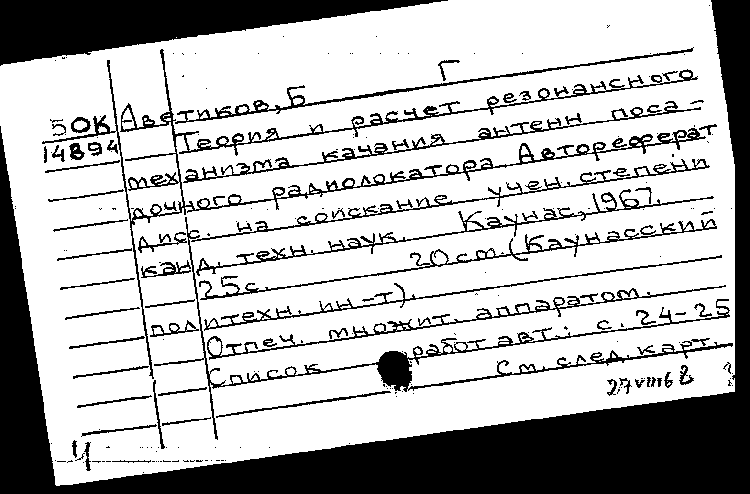 5 ОК Аветиков, Б Г
14894 Теория и расчет резонансного
механизма качания антенн поса-
дочного радиолокатора. Автореферат
дисс. на соискание учен. степени
канд. техн. наук. Каунас, 1967.
25с. 20 см. (Каунасский
политехн. ин-т).
Отпеч. множит. аппаратом.
Список работ авт.: с. 24-25
См. след. карт.
27 VIII 68
Ч